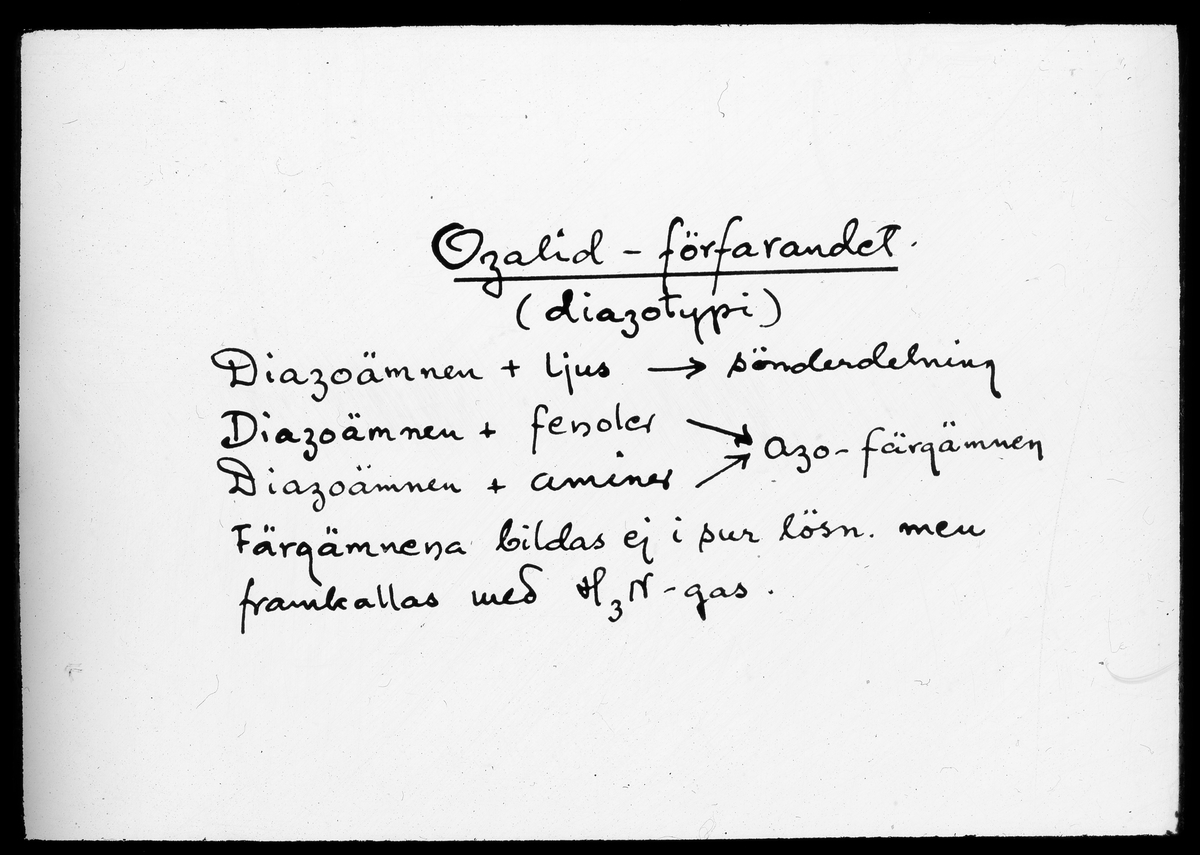 Ozalid - förfarandet.
(diazotypi)
Diazoämnen + ljus → sönderdelning
Diazoämnen + fenoler
Azo-färgämnen
Diazoämnen + aminer
Färgämnena bildas ej i sur lösn. men
framkallas med H₃N-gas.